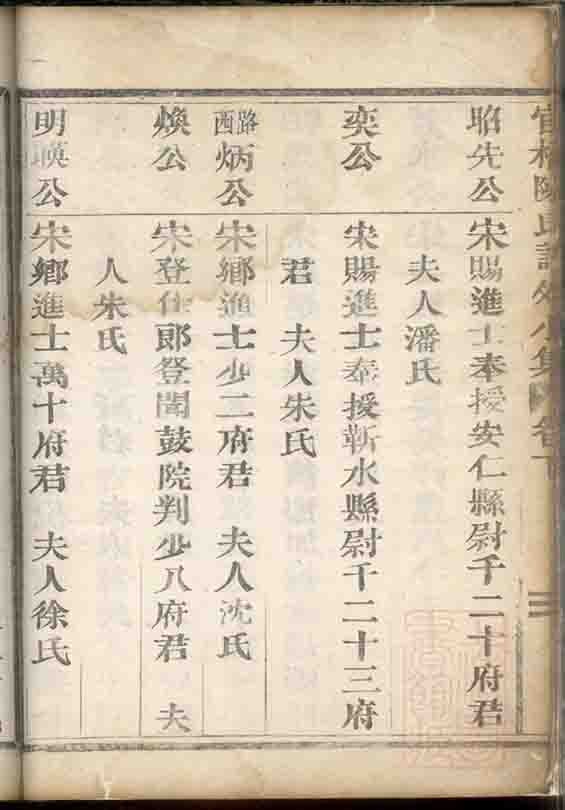 昭先公 宋賜進士奉授安仁縣尉千二十府君
夫人潘氏
奕公 宋賜進士奉授蘄水縣尉千二十三府
君 夫人朱氏
西路炳公 宋鄉進士少二府君 夫人沈氏
煥公 宋登仕郎登聞鼓院判少八府君 夫
人朱氏
明暎公 宋鄉進士萬十府君 夫人徐氏